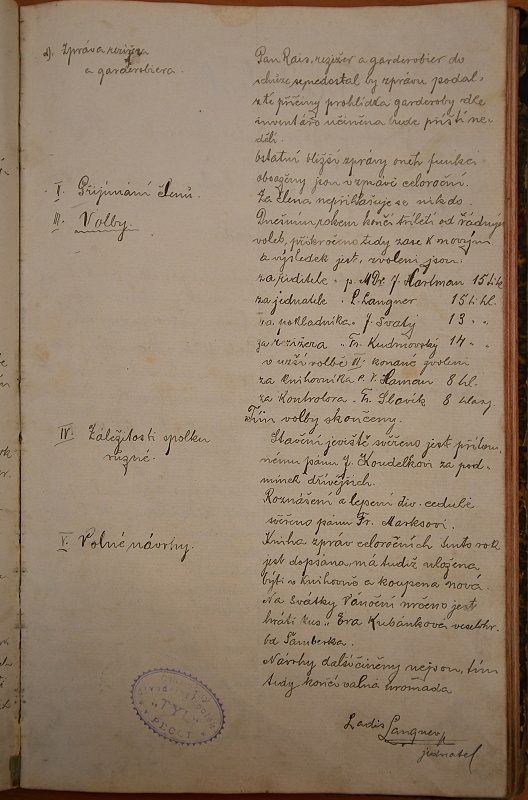 d). Zpráva režiséra
a garderobiera.
Pan Rais, režizér a garderobier do
schůze se nedostal by zprávu podal,
z té příčiny prohlídka garderoby dle
inventáře učiněna bude příští ne-
děli.
Ostatní bližší zprávy oněh funkcí
obsaženy jsou v zprávě celoroční.
II. Přijímání členů.
Za člena nepřihlašuje se nikdo.
III. Volby
Dnešním rokem končí tříletí od řádných
voleb, přikročeno tedy zase k novým
a výsledek jest, zvoleni jsou:
za řiditele - p. MDr. J. Hartman 15 ti hl.
za jednatele - L. Langner 15 ti hl.
za pokladníka - J. Svatý 13 " "
za režizera - Fr. Kudrnovský 14 " "
v užší volbě III. konané zvoleni
za knihovníka p. V. Haman 8 hl.
za kontrolora - Fr. Slavík 8 hlasy.
Tím volby skončeny.
IV. Záležitosti spolku
různé.
Stavění jeviště svěřeno jest přítom-
nému pánu J. Koudelkovi za pod-
mínek dřívějších.
Roznášení a lepení div. cedulí
svěřeno pánu Fr. Marksovi.
V. Volné návrhy.
Kniha zpráv celoročních tímto rok
jest dopsána, má tudíž uložena
býti v knihovně a koupena nová.
Na Svátky Vánoční určeno jest
hráti kus „Eva Kubánková veselohr.
od Šamberka.
Návrhy další činěny nejsou, tím
tudy končí valná hromada
Ladis Langner
jednatel
"TYL"